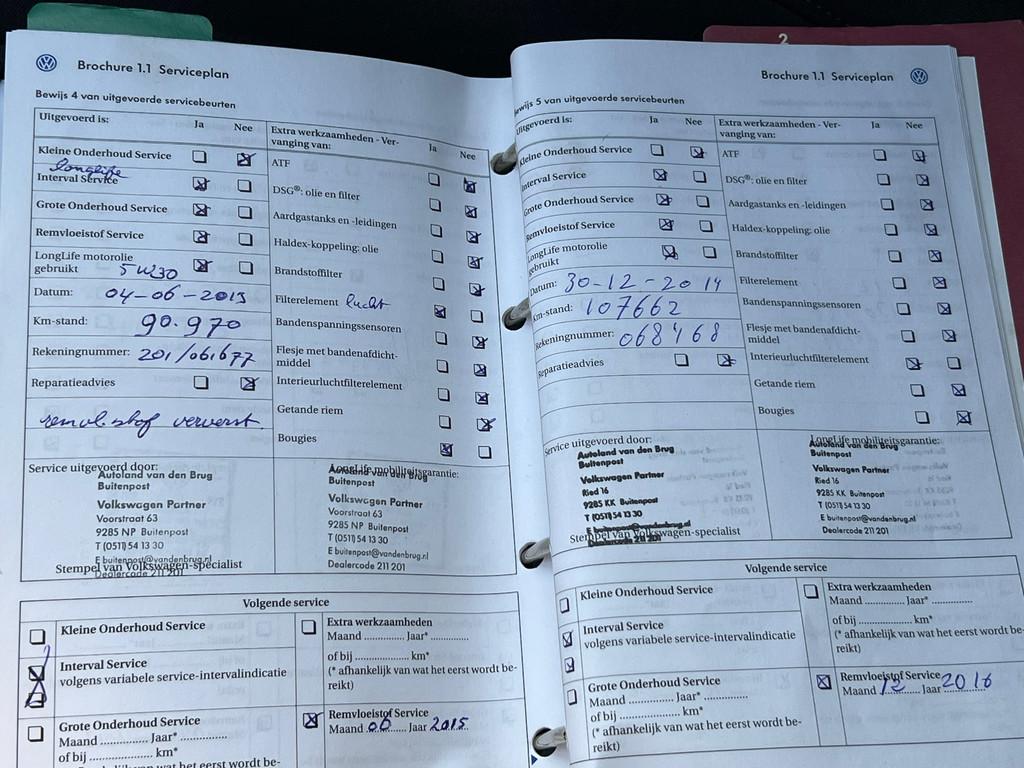 2
Brochure 1.1 Serviceplan
Bewijs 4 van uitgevoerde servicebeurten
Uitgevoerd is:
Ja
Nee
Extra werkzaamheden - Ver-
vanging van:
Ja
Nee
Kleine Onderhoud Service
longlife
Interval Service
Grote Onderhoud Service
Remvloeistof Service
LongLife motorolie
gebruikt 5W30
Datum: 04-06-2013
Km-stand: 90.970
Rekeningnummer: 201/061677
Reparatieadvies
remvl.stof ververst
ATF
DSG®: olie en filter
Aardgastanks en -leidingen
Haldex-koppeling: olie
Brandstoffilter
Filterelement lucht
Bandenspanningssensoren
Flesje met bandenafdicht-
middel
Interieurluchtfilterelement
Getande riem
Bougies
Service uitgevoerd door:
Autoland van den Brug
Buitenpost
Volkswagen Partner
Voorstraat 63
9285 NP Buitenpost
T (0511) 54 13 30
E buitenpost@vandenbrug.nl
Dealercode 211 201
Stempel van Volkswagen-specialist
LongLife mobiliteitsgarantie:
Autoland van den Brug
Buitenpost
Volkswagen Partner
Voorstraat 63
9285 NP Buitenpost
T (0511) 54 13 30
E buitenpost@vandenbrug.nl
Dealercode 211 201
Volgende service
Kleine Onderhoud Service
Interval Service
volgens variabele service-intervalindicatie
Grote Onderhoud Service
Maand .............. Jaar* ..............
of bij .................... km*
Extra werkzaamheden
Maand ........... Jaar* ...........
of bij .................... km*
(* afhankelijk van wat het eerst wordt be-
reikt)
Remvloeistof Service
Maand 06 Jaar 2015
Brochure 1.1 Serviceplan
Bewijs 5 van uitgevoerde servicebeurten
Uitgevoerd is:
Ja
Nee
Extra werkzaamheden - Ver-
vanging van:
Ja
Nee
Kleine Onderhoud Service
Interval Service
Grote Onderhoud Service
Remvloeistof Service
LongLife motorolie
gebruikt
Datum: 30-12-2014
Km-stand: 107662
Rekeningnummer: 068468
Reparatieadvies
ATF
DSG®: olie en filter
Aardgastanks en -leidingen
Haldex-koppeling: olie
Brandstoffilter
Filterelement
Bandenspanningssensoren
Flesje met bandenafdicht-
middel
Interieurluchtfilterelement
Getande riem
Bougies
Service uitgevoerd door:
Autoland van den Brug
Buitenpost
Volkswagen Partner
Ried 16
9285 KK Buitenpost
T (0511) 54 13 30
E buitenpost@vandenbrug.nl
Dealercode 211 201
Stempel van Volkswagen-specialist
LongLife mobiliteitsgarantie:
Autoland van den Brug
Buitenpost
Volkswagen Partner
Ried 16
9285 KK Buitenpost
T (0511) 54 13 30
E buitenpost@vandenbrug.nl
Dealercode 211 201
Volgende service
Kleine Onderhoud Service
Interval Service
volgens variabele service-intervalindicatie
Grote Onderhoud Service
Maand .............. Jaar* ..............
of bij .................... km*
(* afhankelijk van wat het eerst wordt be-
reikt)
Extra werkzaamheden
Maand .............. Jaar* ..............
of bij .................... km*
(* afhankelijk van wat het eerst wordt be-
reikt)
Remvloeistof Service
Maand 12 Jaar 2016